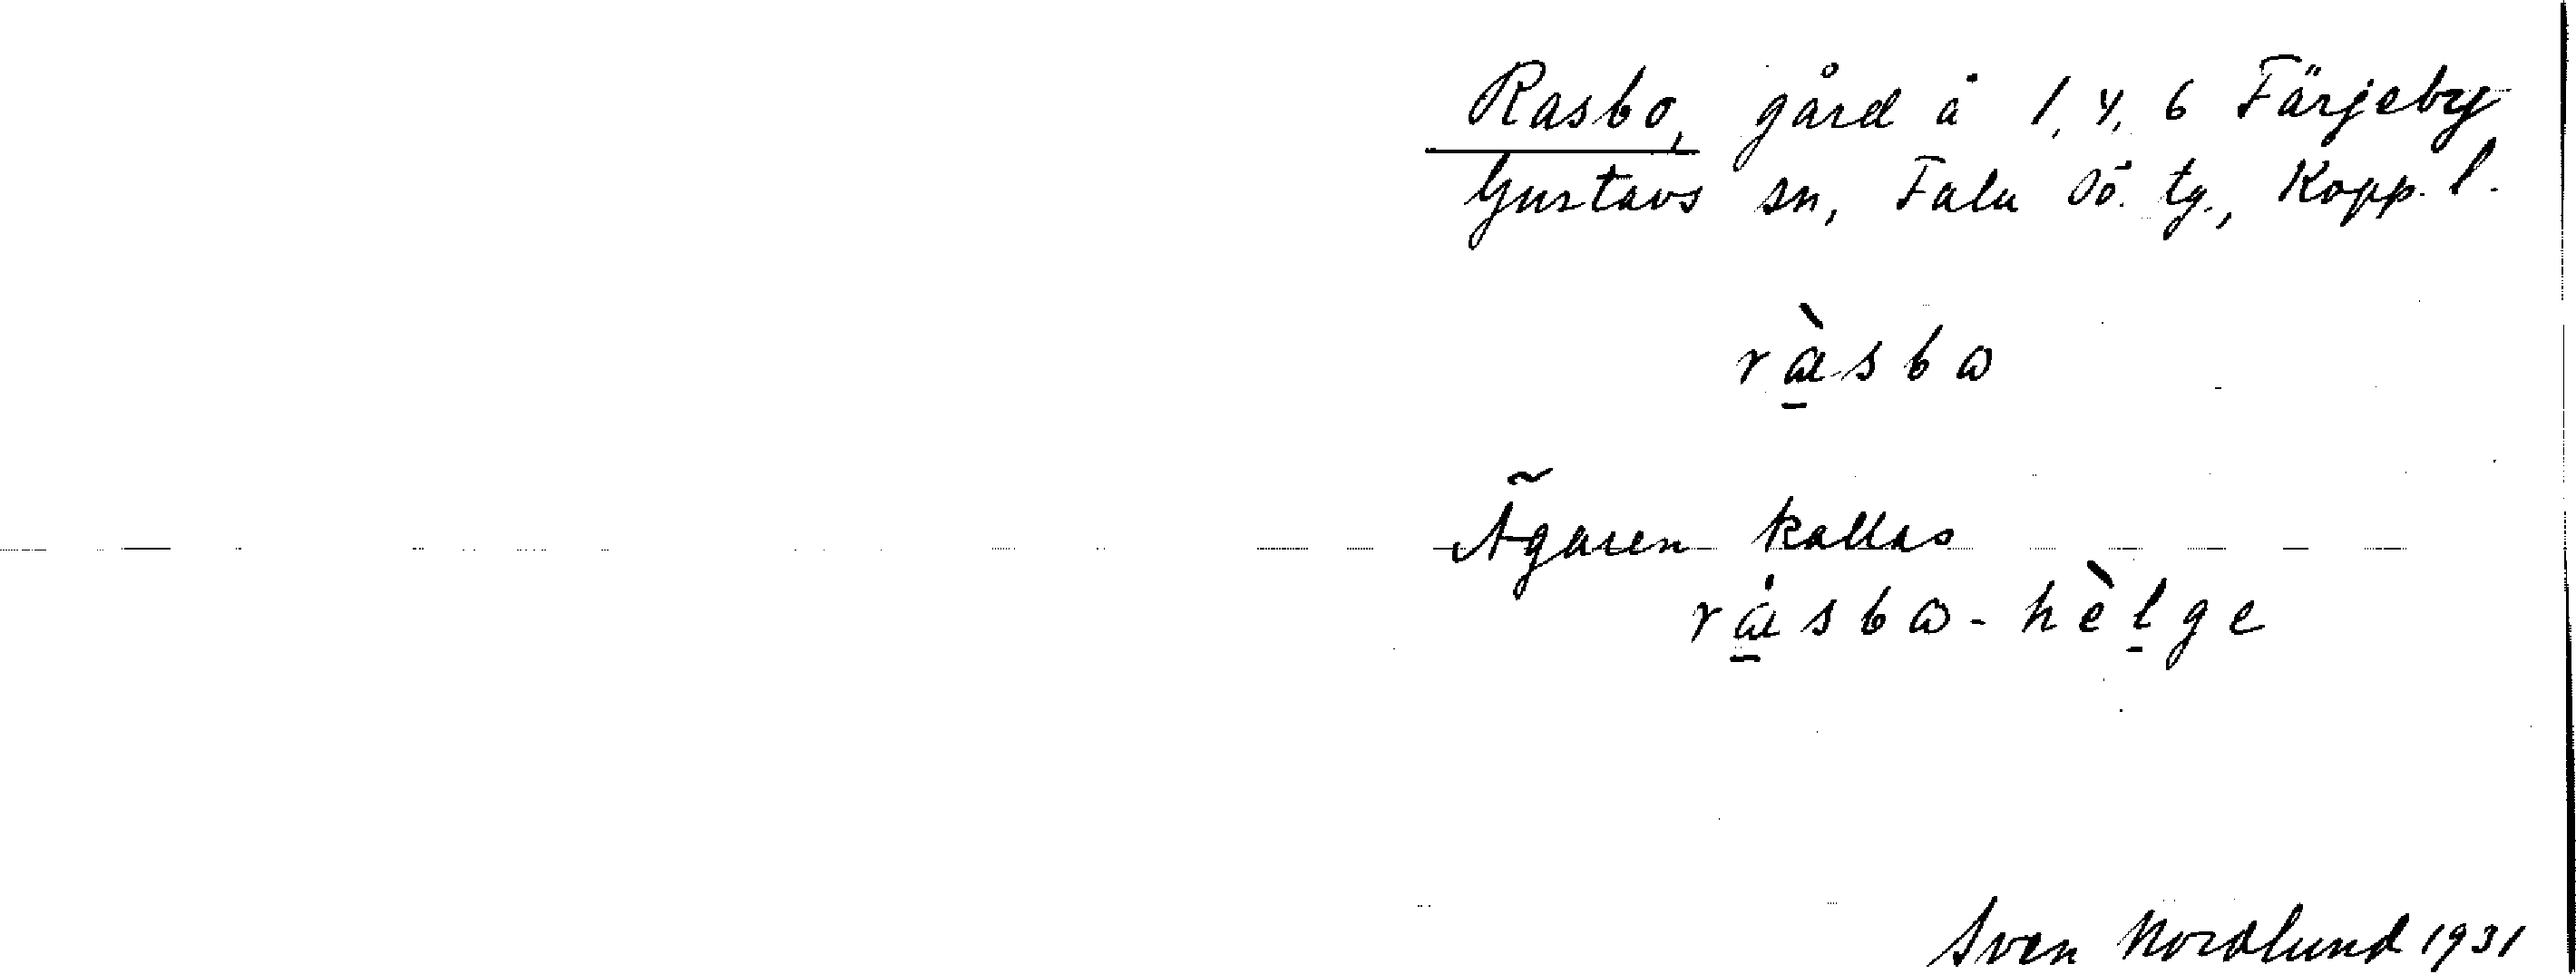 Rasbo, gård å 1, 4, 6 Färjeby
Gustavs sn, Falu Sö. tg., Kopp. l.
ràsbɷ
Ägaren kallas
rásbɷ-hèlge
Sven Nordlund 1931